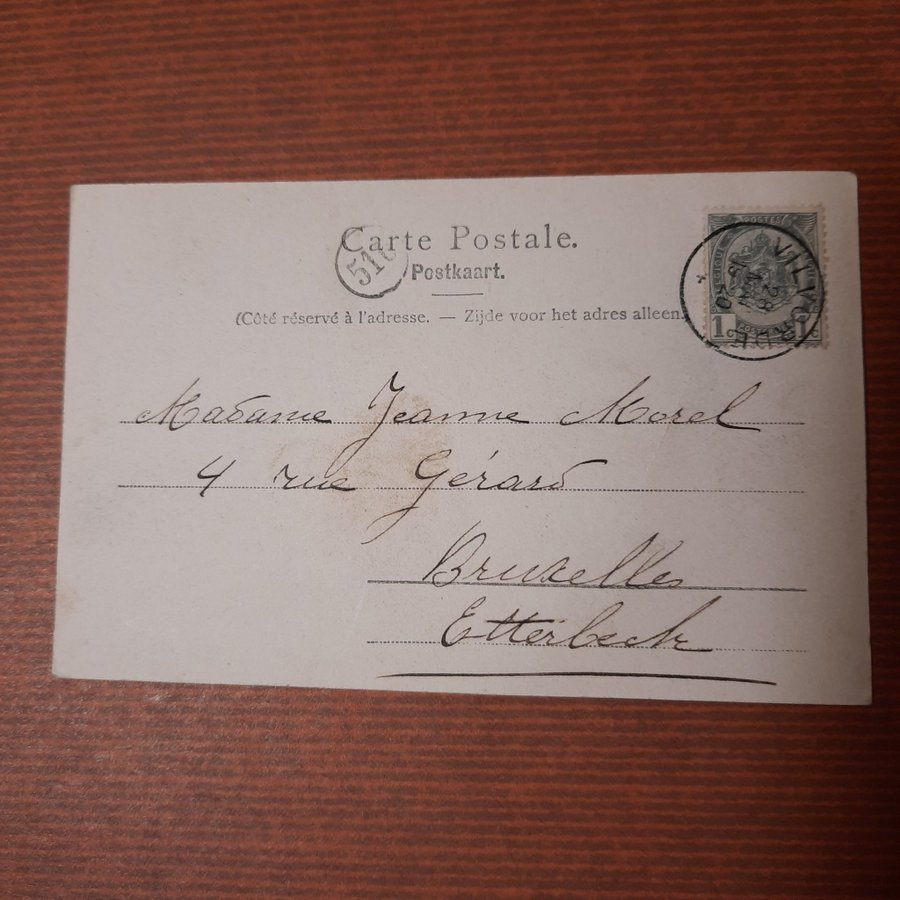 Carte Postale.
516
Postkaart.
(Côté réservé à l'adresse. — Zijde voor het adres alleen.)
POSTES
BELGIQUE
1c 1c
VILVORDE
Madame Jeanne Morel
4 rue Gérard
Bruxelles
Etterbeek